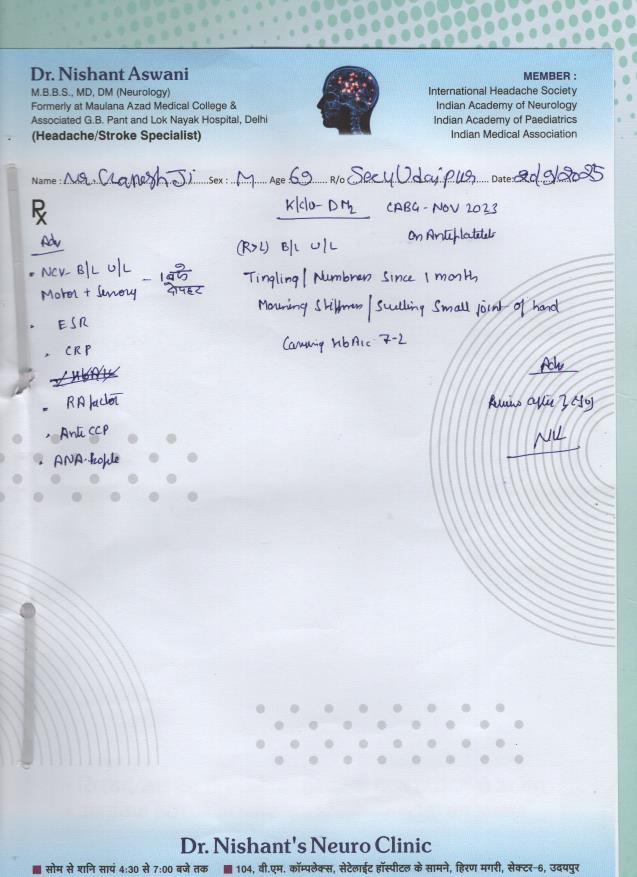 Dr. Nishant Aswani
M.B.B.S., MD, DM (Neurology)
Formerly at Maulana Azad Medical College &
Associated G.B. Pant and Lok Nayak Hospital, Delhi
(Headache/Stroke Specialist)
MEMBER :
International Headache Society
Indian Academy of Neurology
Indian Academy of Paediatrics
Indian Medical Association
Name : Mr. Ji Sex : M Age 69 R/o Sec 4 Udaipur Date: 20/9/2025
Rx
K/c/o- DM2 CABG - NOV 2023
On Antiplatelets
Adv
(R>L) B/L U/L
• NCV- B/L U/L
Motor + Sensory
Tingling / Numbness Since 1 month
Morning Stiffness / Swelling Small joint of hand
• ESR
• CRP
HbA1c 7.2
• RA factor
• Anti CCP
• ANA-Profile
Adv
Review after
Dr. Nishant's Neuro Clinic
■ सोम से शनि सायं 4:30 से 7:00 बजे तक ■ 104, वी.एम. कॉम्पलेक्स, सेटेलाईट हॉस्पीटल के सामने, हिरण मगरी, सेक्टर-6, उदयपुर